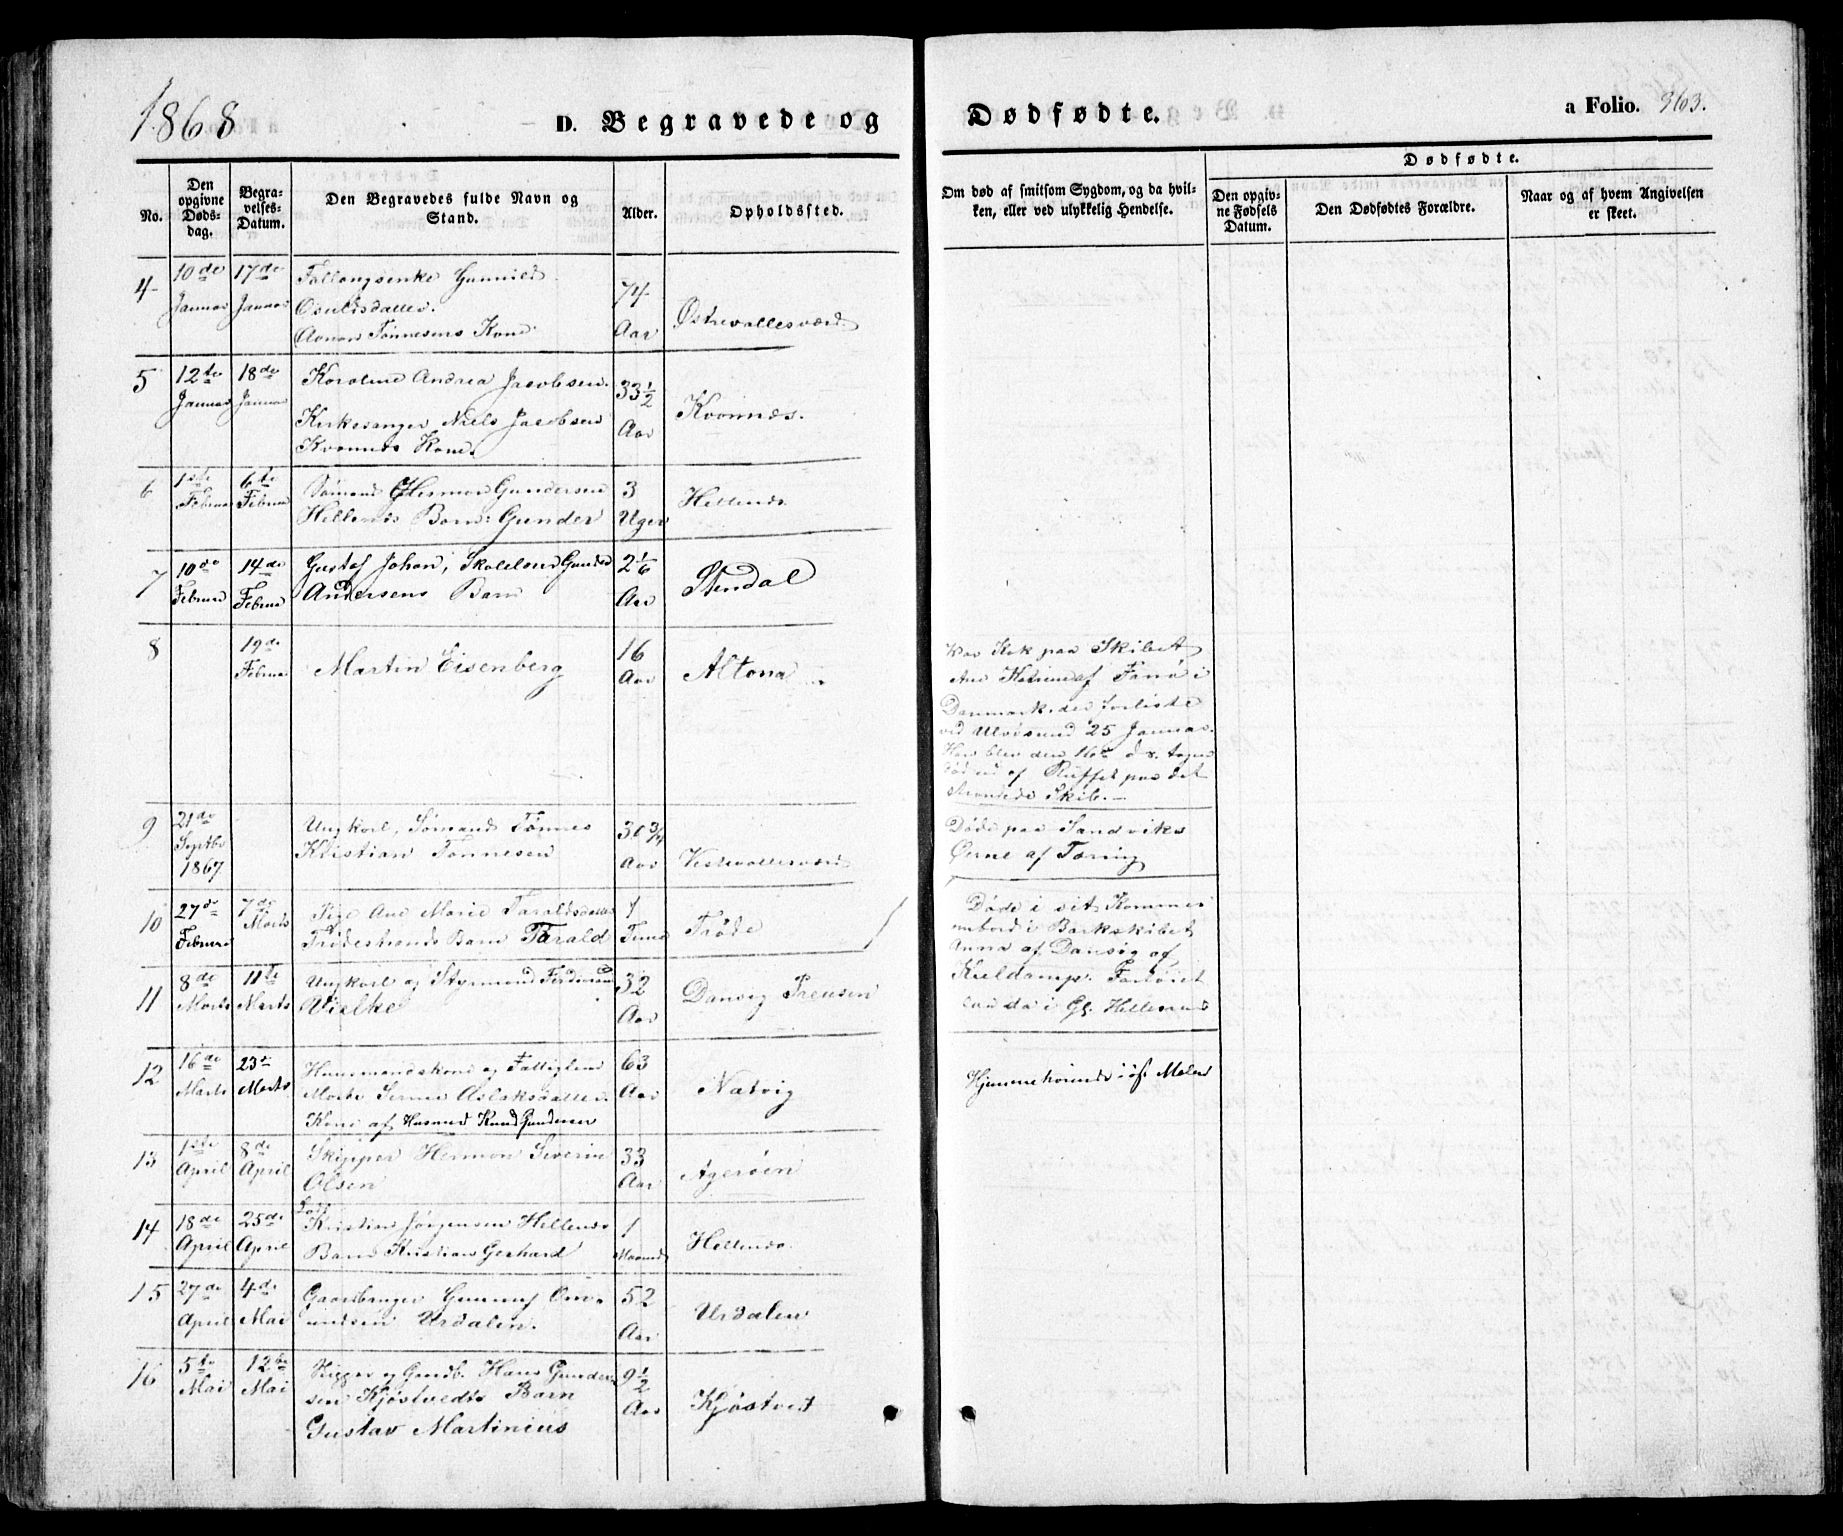 1868
D. Begravede og Dødfødte.
a Folio. 363.
No.
Den opgivne Døds-dag.
Begra-velses-Datum.
Den Begravedes fulde Navn og Stand.
Alder.
Opholdssted.
Om død af smitsom Sygdom, og da hvil-
ken, eller ved ulykkelig Hendelse.
Dødfødte.
Den opgiv-ne Fødsels Datum.
Den Dødfødtes Forældre.
Naar og af hvem Angivelsen er skeet.
4 10de 17de
Januar Januar 74
Aanon Tønnesens Kone Aar Østrevallesværd
5 12te 18de Karoline Andrea Jacobsen 33 1/2
Januar Januar
Kirkesanger Niels Jacobsen Aar Kvannes.
Kvannes Kone
6 1ste 6te Sømand Gundersen 3
Februar Februar Hellenes Barn: Gunder Uger Hellenes
7 10de 14de Gustaf Johan, Gunder 2 1/6
Februar Februar Andersens Barn Aar Stendal
8 19de Februar Martin Eisenberg 16 Aar Altona
Var Kok paa Skibet
Ane Katrine af Fanø i
Danmark der forliste
ved Ulvøsund 25 Januar.
Han blev den 16de
død ud af Ruffet paa det
strandede Skib.
9 21de Septbr 1867
Ungkarl, Sømand Tønnes 30 3/4
Kristian Tønnesen Aar Vestrevallesværd
Døde paa Sandviks
Øerne af Tæring
10 27de 7de Pige Ane Marie Taraldsdatter 1
Februar Marts Barn Tarald Time Trøde
11 8de 11te Ungkarl og Styrmand Ferdinand 32
Marts Marts Wielke Aar Danzig Preusen
Døde i sit Kammer
ombord i Barkskibet
Anna af Danzig af
Kuldamp. Fartøiet
laa da i Gl. Hellesund
12 16de 23de Huusmandskone og Fattiglem 63
Marts Marts Aslaksdatter Aar Natvig
Kone af Husmd Knud Gundersen
Hjemmehørende i
13 1ste 8de Skipper Herman Severin 33
April April Olsen Aar Agerøen
14 18de 25de Kristian Jørgensen Hellenes 1
April April Barn Kristian Gerhard Maaned Hellenes.
15 27de 4de Gaardbruger Gunnuf Om- 52
April Mai undsen Urdalen. Aar Urdalen
16 5te 12te Skipper og Gaardb. Hans Gunder- 9 1/2
Mai Mai sen Kjøstvedts Barn Aar Kjøstvet
Gustav Martinius